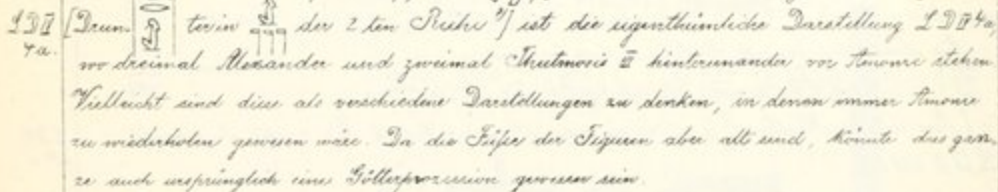 LD IV 4a. [Drun- terin der 2 ten Reihe?)] ist die eigenthümliche Darstellung LD IV 4a,
wo dreimal Alexander und zweimal Thutmosis III hintereinander vor Amonre stehen.
Vielleicht sind diese als verschiedene Darstellungen zu denken, in denen immer Amonre
zu wiederholen gewesen wäre. Da die Füße der Figuren aber alt sind, könnte das gan-
ze auch ursprünglich eine Götterprozession gewesen sein.